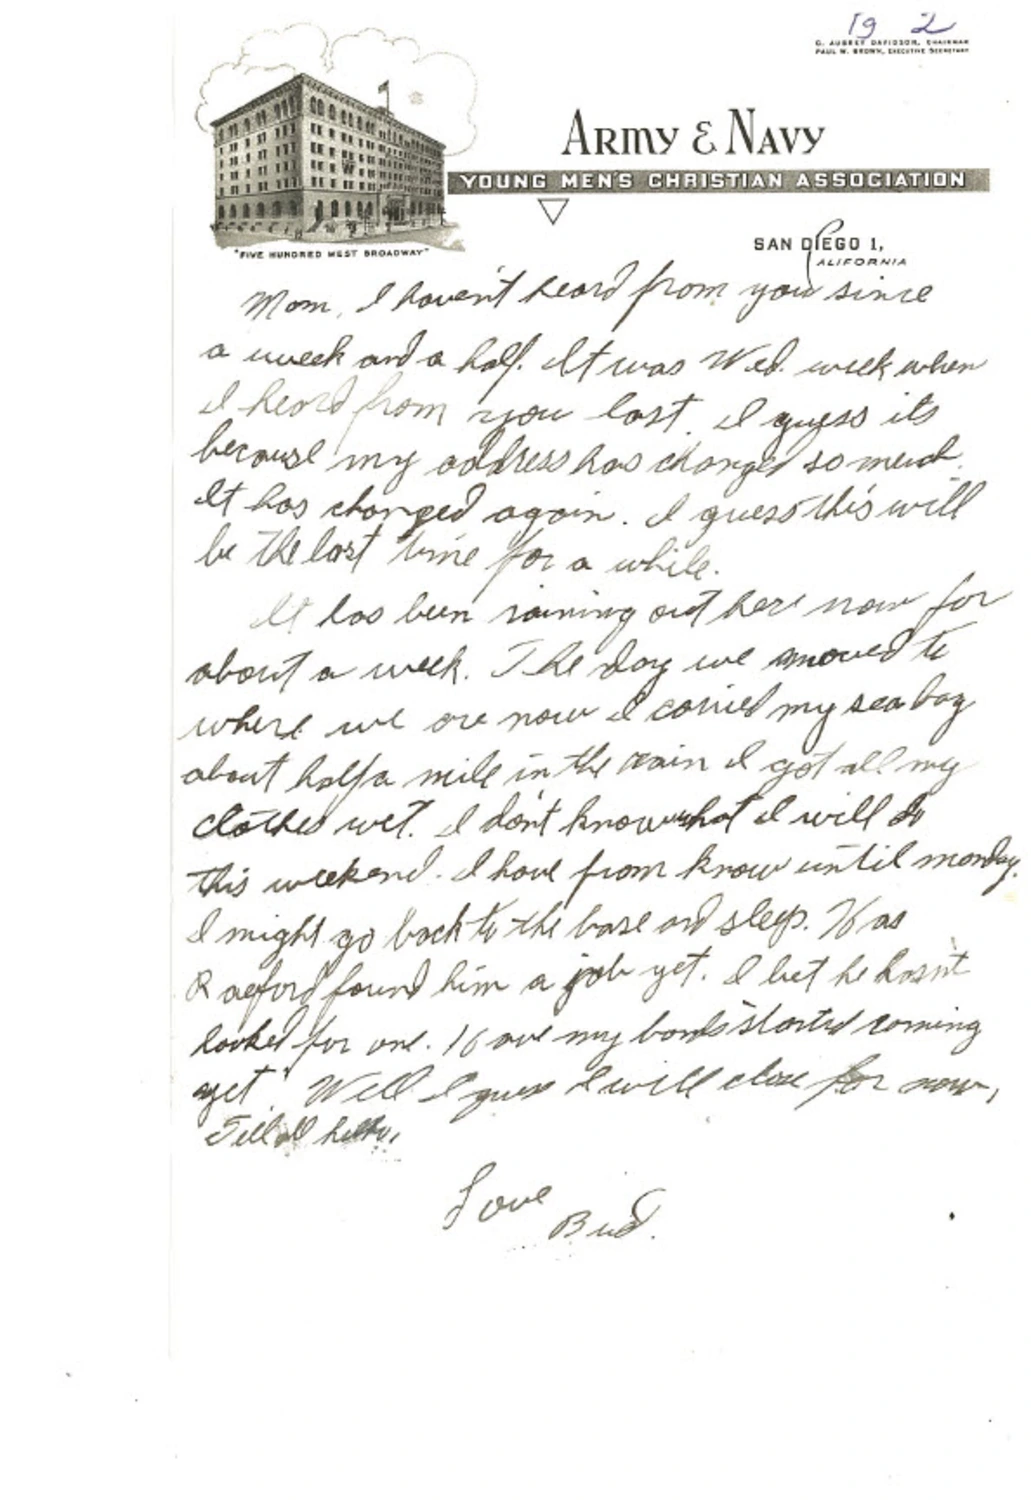 19 2
G. AUBREY DAVIDSON, CHAIRMAN
PAUL W. BROWN, EXECUTIVE SECRETARY
ARMY & NAVY
YOUNG MEN'S CHRISTIAN ASSOCIATION
"FIVE HUNDRED WEST BROADWAY"
SAN DIEGO 1,
CALIFORNIA
Mom, I haven't heard from you since
a week and a half. It was Wed. week when
I heard from you last. I guess its
because my address has changed so much.
It has changed again. I guess this will
be the last time for a while.
It has been raining out here now for
about a week. The day we moved to
where we are now I carried my sea bag
about half a mile in the rain I got all my
clothes wet. I don't know what I will do
this weekend. I have from know until monday.
I might go back to the base and sleep. Has
Raeford found him a job yet. I bet he hasn't
looked for one. Have my bonds started coming
yet? Well I guess I will close for now,
Tell all hello.
Love
Bud.